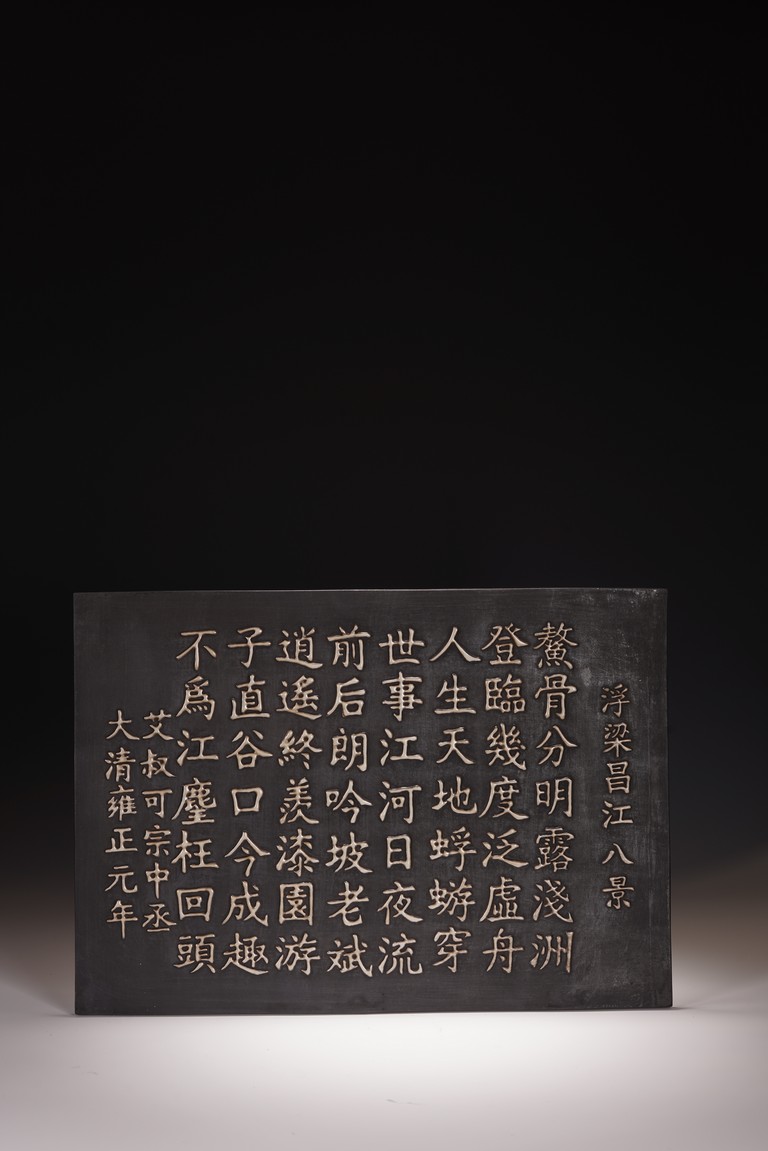 浮梁昌江八景
鰲骨分明露淺洲
登臨幾度泛虛舟
人生天地蜉蝣穿
世事江河日夜流
前后朗吟坡老斌
逍遙終羨漆園游
子直谷口今成趣
不爲江塵枉回頭
艾叔可宗中丞
大清雍正元年